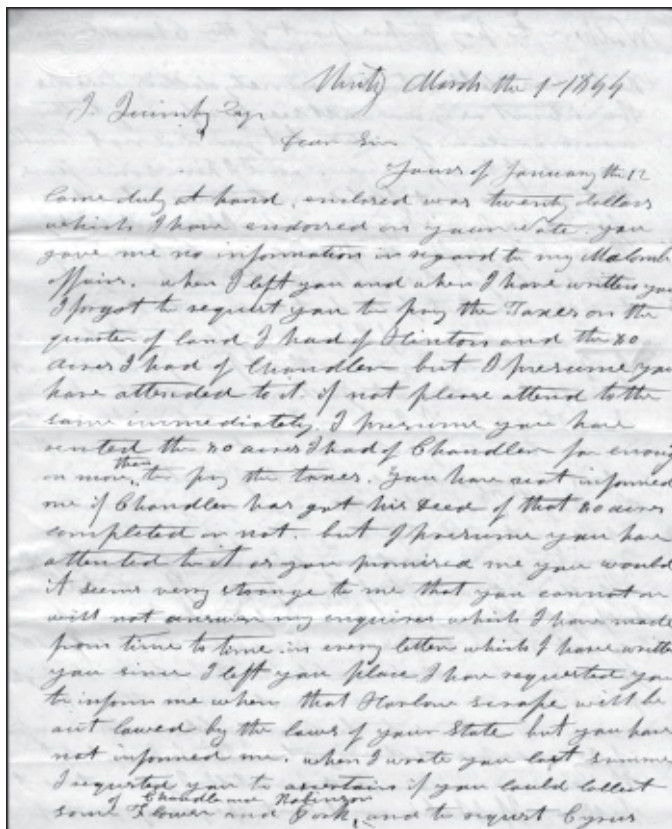 Unity March the 1 - 1844
J. Quimby Esqr
Dear Sir
Yours of January the 12
Came duly at hand, enclosed was twenty dollars
which I have endorsed on your Note. you
gave me no information in regard to my Macomb
affairs. when I left you and when I have written you
I forgot to request you to pay the Taxes on the
quarter of land I had of Hinton and the 80
acres I had of Chandler but I presume you
have attended to it. if not please attend to the
same immediately. I presume you have
rented the 80 acres I had of Chandler for enough
or more than to pay the taxes. You have not informed
me if Chandler has got his Deed of that 80 acres
completed or not. but I presume you have
attended to it as you promised me you would
it seems very strange to me that you cannot or
will not answer my enquires which I have made
from time to time. in every letter which I have written
you since I left you place I have requested you
to inform me when that Harlow scrape will be
out lawed by the laws of your State but you have
not informed me. when I wrote you last summer
I requested you to ascertain if you could collect
of Chandler and Robinson
some Flower and Pork, and to request Cyrus